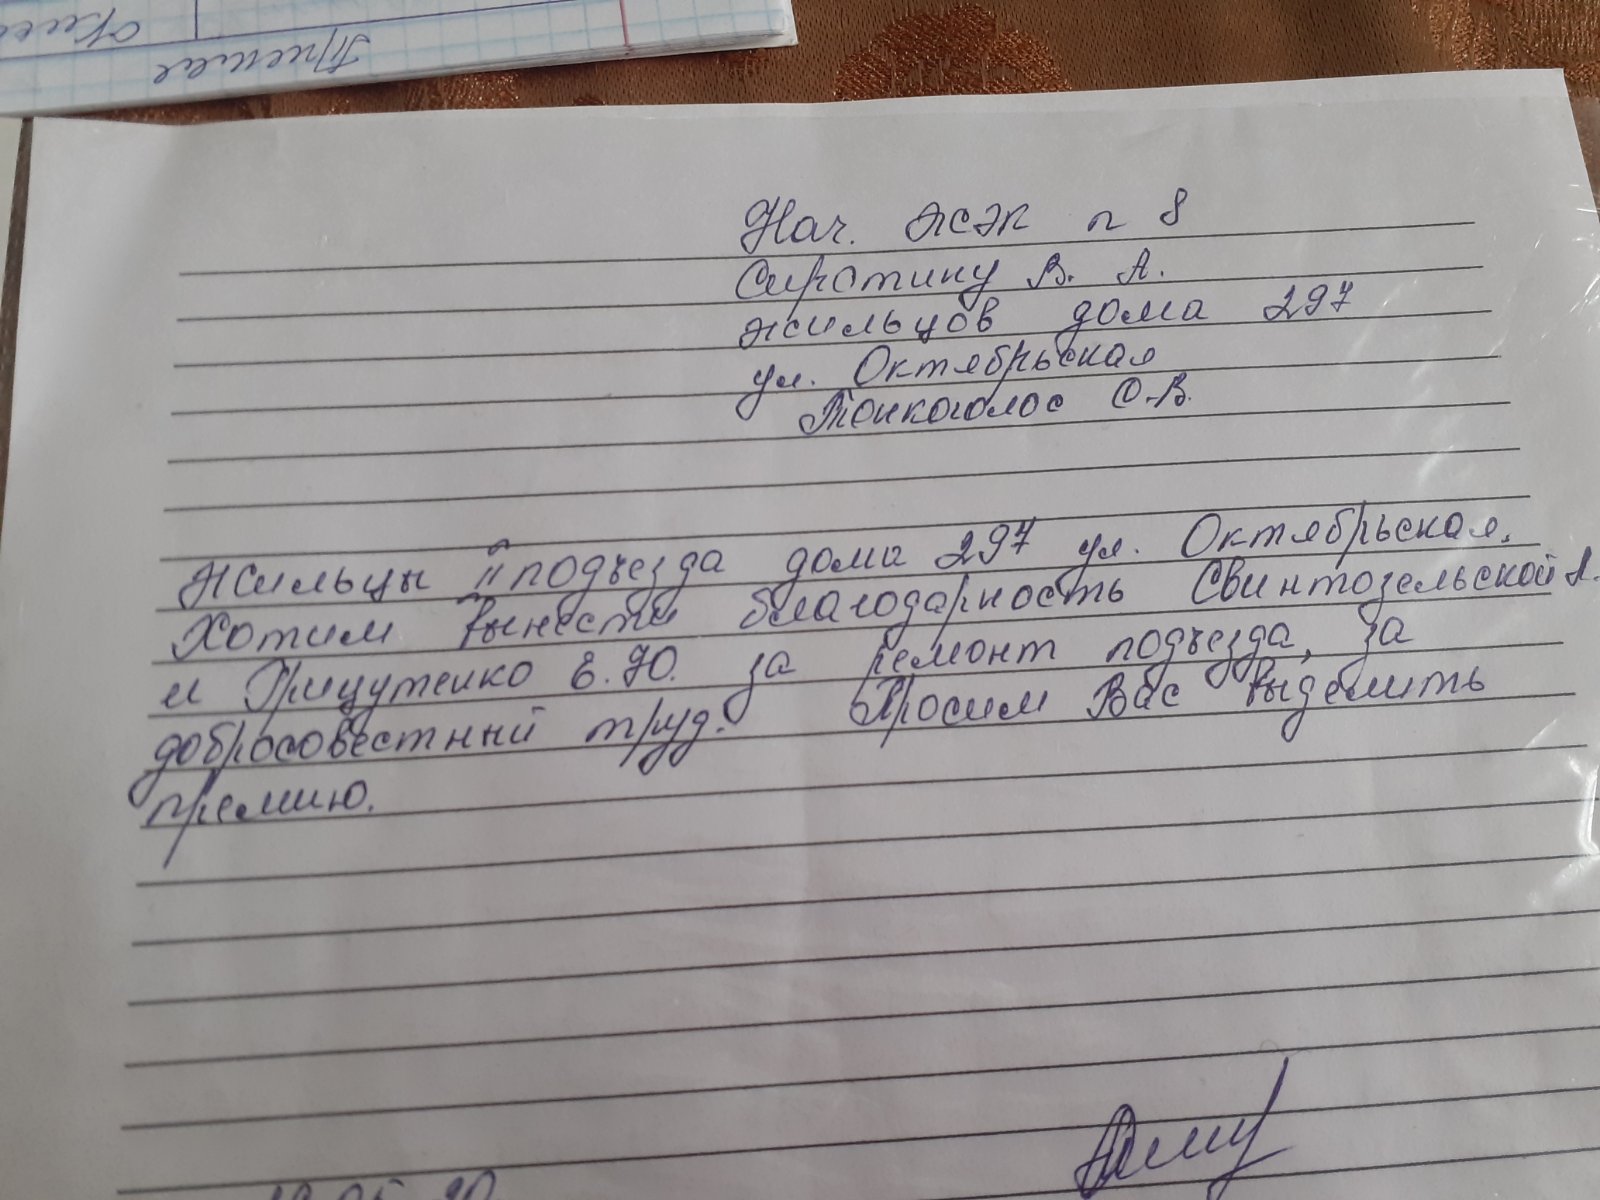 Нач. ЖЭК п 8
Сиротину В. А.
жильцов дома 297
ул. Октябрьская
Тонкоголос О.В.
Жильцы II подъезда дома 297 ул. Октябрьская.
Хотим вынести благодарность Свинтозельской А.
и Грицутенко Е.Ю. за ремонт подъезда, за
добросовестный труд. Просим Вас выделить
премию.